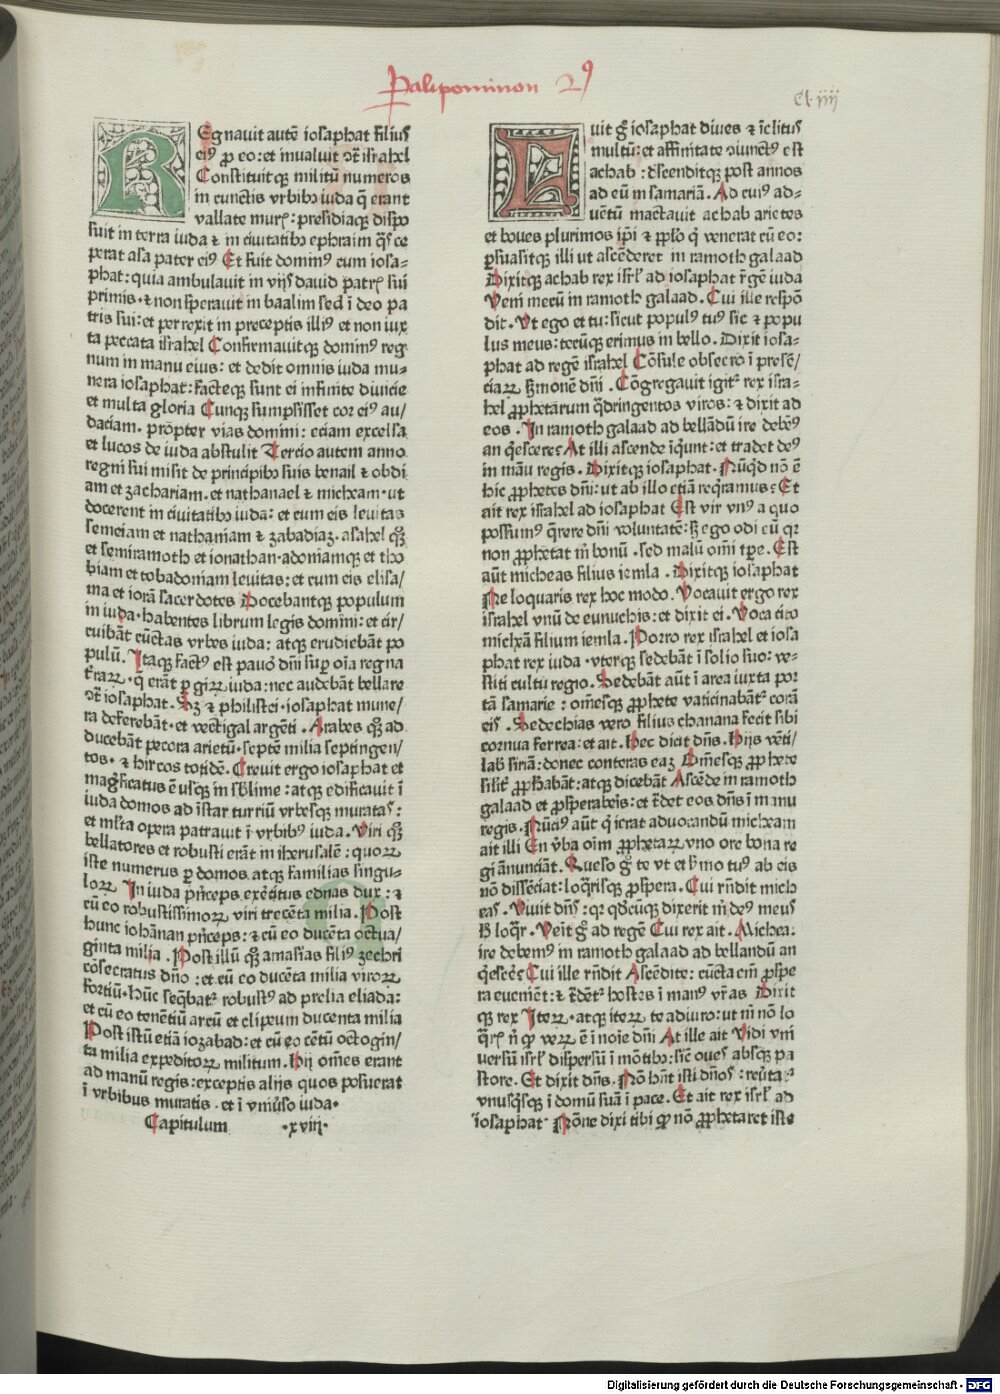 Palipominon 2⁹
Cl·iiij
Regnavit autē iosaphat filius
ei⁹ ꝓ eo: et invaluit ↄ̄t israhel
Constituitqꝫ militū numeros
in cunctis vrbibꝫ iuda q̄ erant
vallate mur?: presidiaqꝫ dispo
suit in terra iuda ⁊ in civitatibꝫ ephraim q̄s ce
perat asa pater ei⁹ Et fuit domin⁹ cum iosa⸗
phat: quia ambulavit in vijs david patrꝭ sui
primis·⁊ non speravit in baalim sed ī deo pa
tris sui: et perrexit in preceptis illi⁹ et non iux
ta peccata israhel Confirmavitqꝫ domin⁹ reg
num in manu eius: et dedit omnis iuda mu⸗
nera iosaphat: facteqꝫ sunt ei infinite divicie
et multa gloria Cunqꝫ sumpsisset cor ei⁹ au/
daciam. propter vias domini: eciam excelsa
et lucos de iuda abstulit Tercio autem anno
regni sui misit de principibꝫ suis benail ⁊ obdi
am et zachariam. et nathanael ⁊ micheam·ut
docerent in civitatibꝫ iuda: et cum eis levitas
semeiam et nathaniam ⁊ zabadiaz·asahel qꝫ
et semiramoth et ionathan·adoniamqꝫ et tho
biam et tobadoniam levitas: et cum eis elisa/
ma et iorā sacerdotes Docebantqꝫ populum
in iuda·habentes librum legis domini: et cir/
cuibāt cūctas vrbes iuda: atqꝫ erudiebāt po
pulū. Itaqꝫ fact⁹ est pavoꝛ dn̄i suꝑ oīa regna
t̄raꝝ·q̄ erāt ꝑ giꝝ iuda: nec audebāt bellare
ↄ̄t iosaphat. Sꝫ ⁊ philistei·iosaphat mune/
ra deferebāt·et vectigal argēti. Arabes qꝫ ad
ducebāt pecora arietū·septē milia septingen/
tos·⁊ hircos totidē. Crevit ergo iosaphat et
magficatus ē usqꝫ in sblime: atqꝫ edificavit ī
iuda domos ad īstar turriū vrbesqꝫ muratas:
et ml̄ta opera patravit ī vrbib⁹ iuda. Viri qꝫ
bellatores et robusti erāt in iherusalē: quoꝝ
iste numerus ꝑ domos atqꝫ familias singu⸗
loꝝ In iuda pͥnceps exercitus ednas dux: ⁊
cū eo robustissimoꝝ viri trecēta milia. Post
hunc iohānan pͥnceps: ⁊ cū eo ducēta octua/
ginta milia. Post illū qꝫ amasias fili⁹ zechri
cōsecratus dn̄o: et cū eo ducēta milia viroꝝ
fortiū·Hūc seq̄batᷣ robust⁹ ad prelia eliada:
et cū eo tenētiū arcū et clipeum ducenta milia
Post istū etiā iozabad: et cū eo cētū octogin/
ta milia expeditoꝝ militum. Hij om̄es erant
ad manū regis: exceptis alijs quos posuerat
ī vrbibus muratis·et ī vniv̄so iuda·
Capitulum ·xviij·
Fuit gͦ iosaphat dives ⁊ īclitus
multū: et affinitate ↄiunct⁹ est
achab: descenditqꝫ post annos
ad eū in samariā. Ad cui⁹ ad⸗
vētū mactavit achab arietes
et boves plurimos ip̄i ⁊ pplo q̄ venerat cū eo:
ꝑsuasitqꝫ illi ut ascēderet in ramoth galaad
Dixitqꝫ achab rex isrl̄ ad iosaphat r̄gē iuda
Veni mecū in ramoth galaad. Cui ille respō
dit. Vt ego et tu: sicut popul⁹ tu⁹ sic ⁊ popu
lus meus: tecūqꝫ erimus in bello. Dixit iosa⸗
phat ad regē israhel Cōsule obsecro ī presē/
ciaꝝ ẜmonē dn̄i. Cōgregavit igitᷣ rex isra⸗
hel ꝓphetarum q̄dringentos viros: ⁊ dixit ad
eos. In ramoth galaad ad bellādū ire debe⁹
an q̄escere: At illi ascende īq̄unt: et tradet de⁹
in manu regis. Dixitqꝫ iosaphat. Nūqͥd nō ē
hic ꝓphetes dn̄i: ut ab illo etiā req̄ramus: Et
ait rex israhel ad iosaphat Est vir vn⁹ a quo
possum⁹ q̄rere dn̄i voluntatē: ẜꝫ ego odi eū qꝛ
non ꝓphetat m̄ bonū·sed malū om̄i tꝑe. Est
aūt micheas filius iemla. Dixitqꝫ iosaphat
Ne loquaris rex hoc modo. Vocavit ergo rex
israhel vnū de eunuchis: et dixit ei. Voca cito
micheā filium iemla. Porro rex israhel et iosa
phat rex iuda·vterqꝫ sedebāt ī solio suo: ve⸗
stiti cultu regio. Sedebāt aūt ī area iuxta por
tā samarie: om̄esqꝫ ꝓphete vaticinabātᷣ corā
eis. Sedechias vero filius chanana fecit sibi
cornua ferrea: et ait. Hec dicit dn̄s. Hijs vēti/
lab siriā: donec conteras eaꝫ Om̄esqꝫ ꝓphete
silit̄ ꝓphabāt: atqꝫ dicebāt Ascēde in ramoth
galaad et ꝓsperaberis: et t̄det eos dn̄s ī manu
regis. Nūci⁹ aūt q̄ ierat ad vocandū micheam
ait illi En v̄ba oīm ꝓphetaꝝ vno ore bona re
gi ānunciāt. Queso gͦ te vt et ẜmo tu⁹ ab eis
nō dissēciat: loq̄risqꝫ ꝓspera. Cui rn̄dit mich
eas. Vivit dn̄s: qꝛ qd̄cūqꝫ dixerit m̄ de⁹ meus
h̄ loqᷣr. Veit gͦ ad regē Cui rex ait. Michea:
ire debem⁹ in ramoth galaad ad bellandū an
q̄escēꝫ Cui ille rn̄dit Ascēdite: cūcta em̄ ꝓspe
ra eveniēt: ⁊ t̄dētᷣ hostes ī man⁹ vr̄as Dixit
qꝫ rex Iteꝝ·atqꝫ iteꝝ te adiuro: ut m̄ nō lo
q̄rꝭ n̄ qͦ veꝝ ē ī noīe dn̄i At ille ait Vidi vni
versū isrl̄ dispersū ī mōtibꝫ: sic̄ oves absqꝫ pa
store. Et dixit dn̄s. Nō hn̄t isti dn̄os: rev̄ta
vnusqͥsqꝫ ī domū suā ī pace. Et ait rex isrl̄ ad
iosaphat· Nōne dixi tibi qͦ nō ꝓphetaret iste
Digitalisierung gefördert durch die Deutsche Forschungsgemeinschaft · DFG